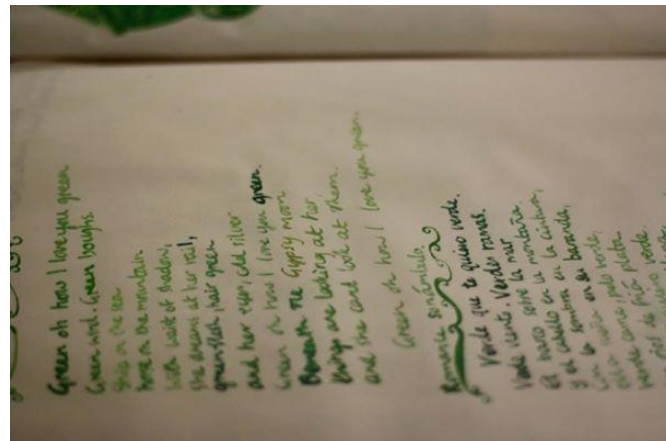 Green oh how I love you green
Green wind. Green boughs
Ship on the sea
horse on the mountain
With waist of shadow,
she dreams at her rail,
green flesh, hair green
and her eyes, cold silver
Green oh how I love you green.
Beneath the Gypsy Moon
things are looking at her,
and she can't look at them.
Green oh how I love you green.
Romance Sonámbulo
Verde que te quiero verde.
Verde viento. Verdes ramas.
El barco sobre la mar
el caballo en la montaña.
Con la sombra en la cintura,
ella sueña en su baranda,
verde carne, pelo verde,
con ojos de fría plata